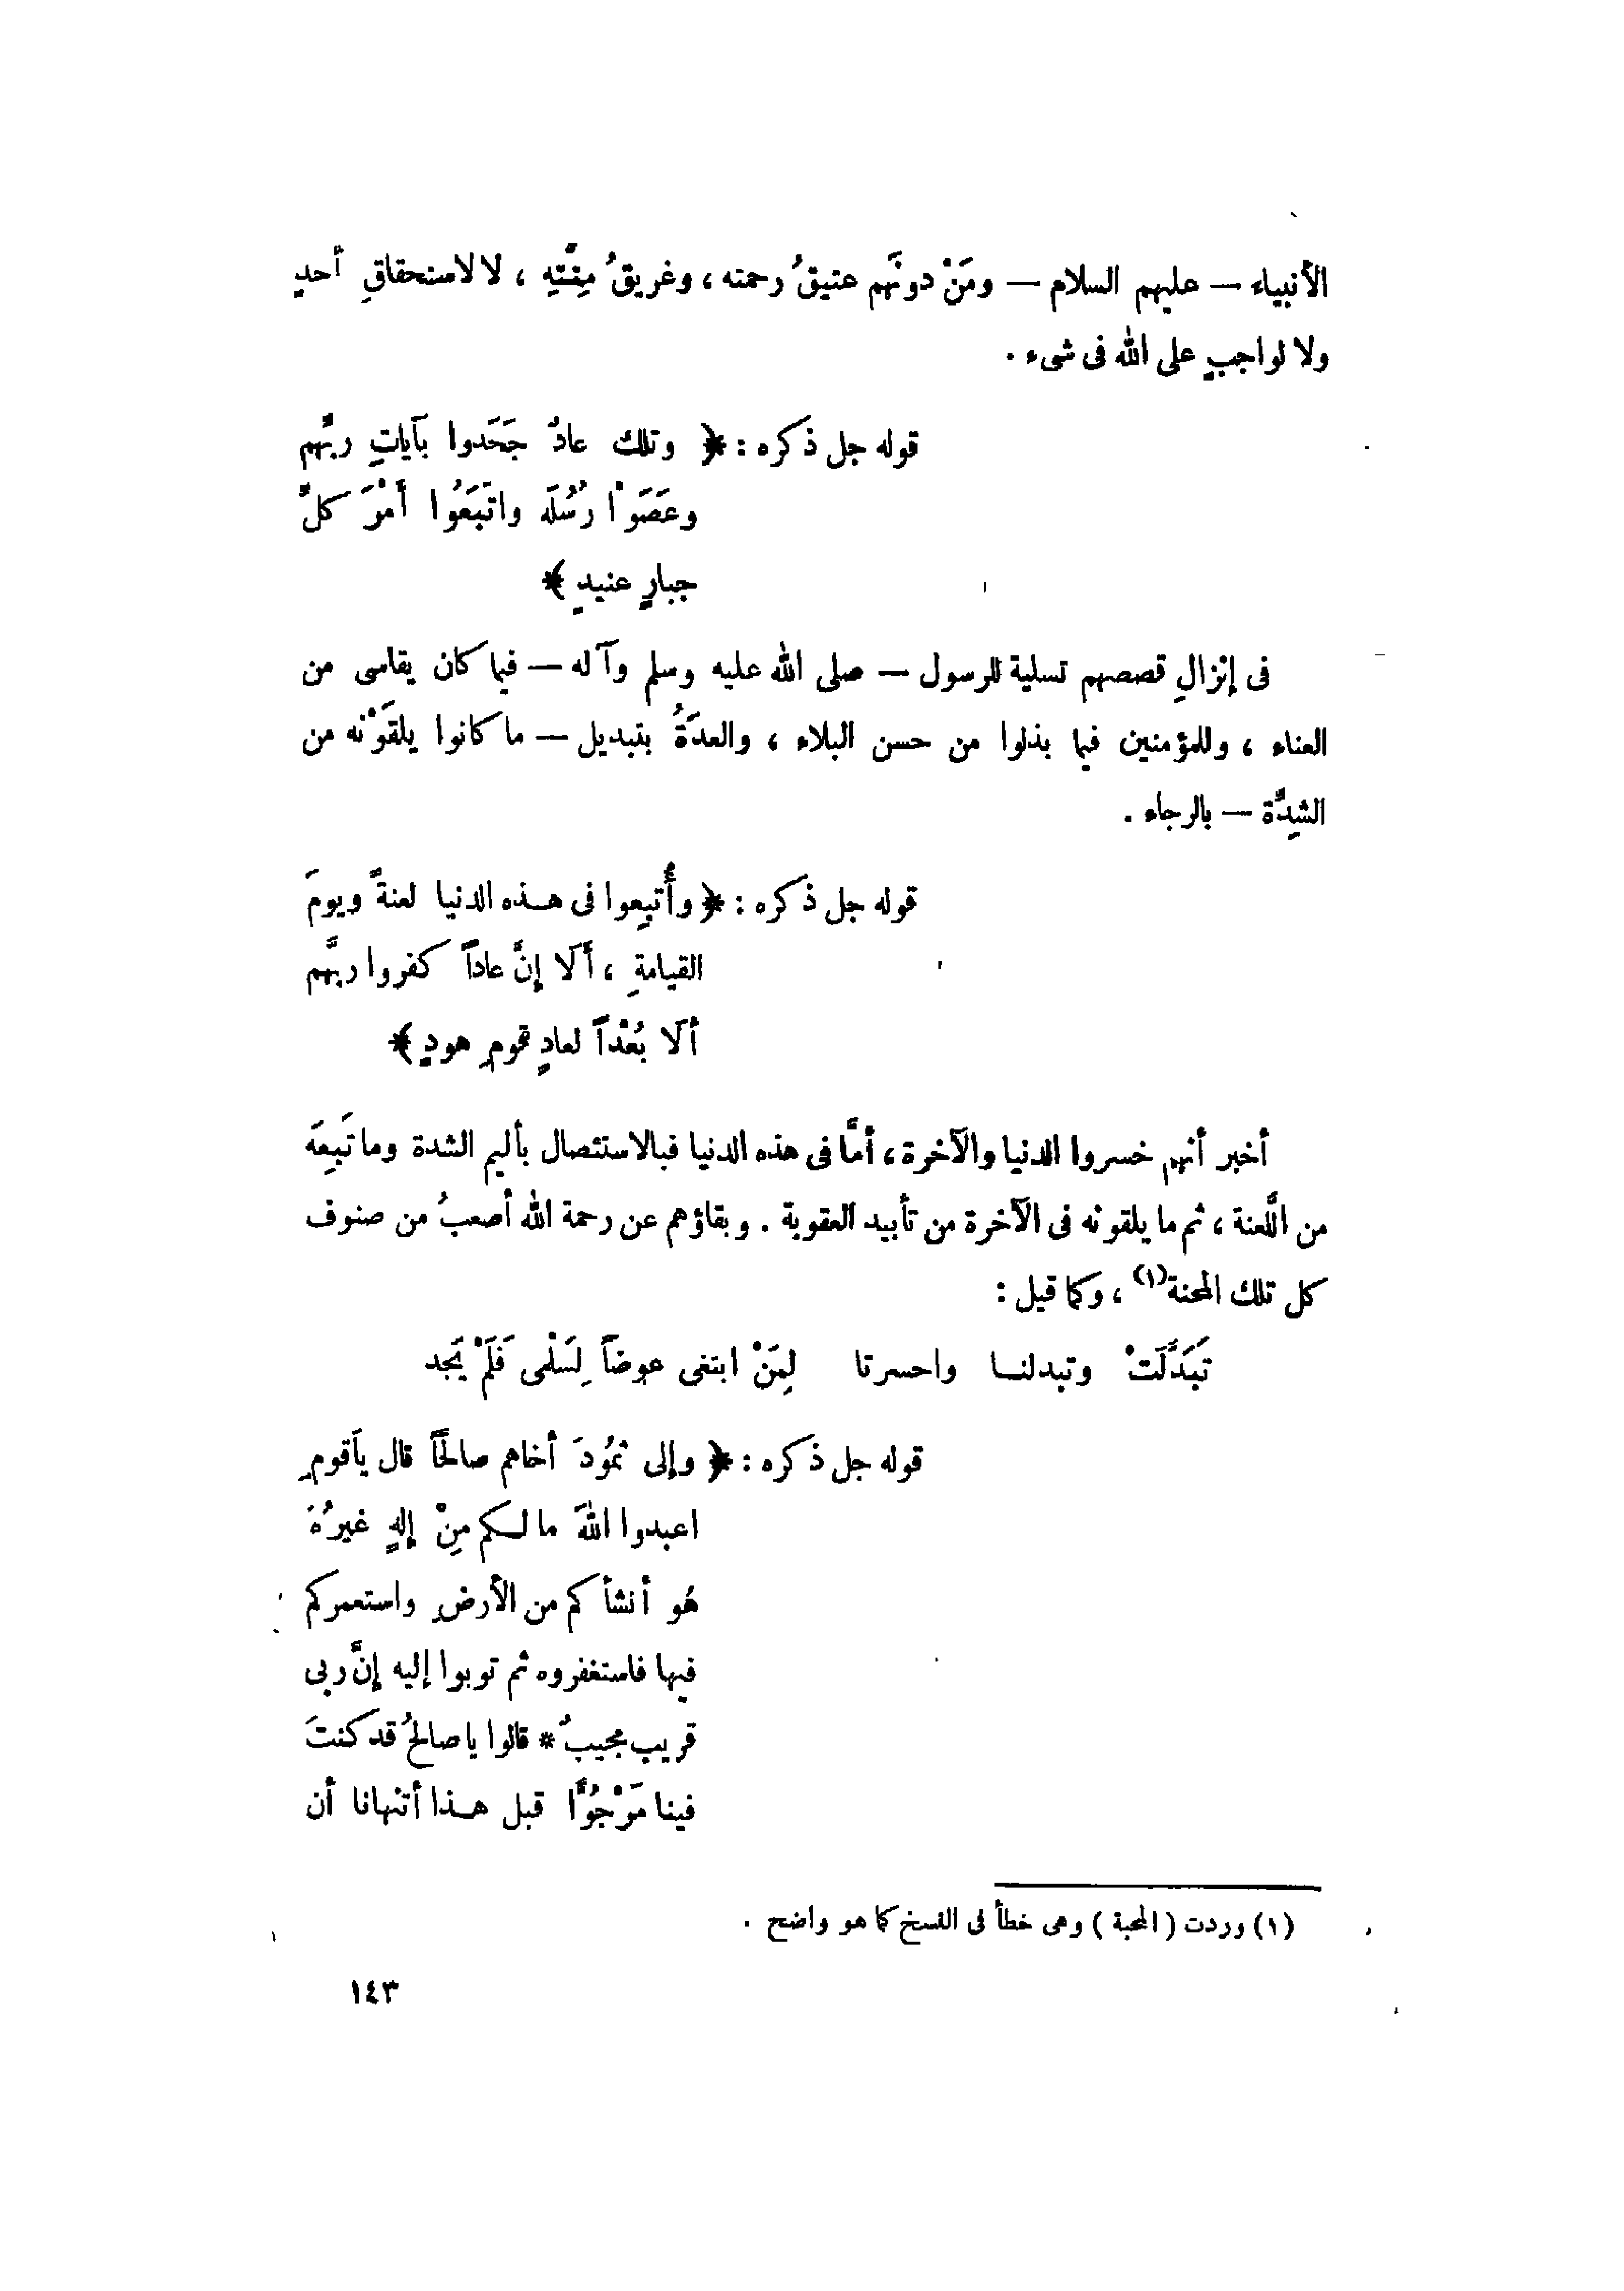 الأنبياء — عليهم السلام — ومَنْ دونَهم عتيقُ رحمته ، وغريقُ مِنَّتِهِ ، لا لاستحقاقِ أحدٍ
ولا لواجبٍ على الله فى شىء .
قوله جل ذكره : ﴿ وتلك عادٌ جَحَدوا بآياتِ ربِّهم
وعَصَوْا رُسُلَه واتَّبَعُوا أَمْرَ كلِّ
جبارٍ عنيدٍ ﴾
فى إنزالِ قصصهم تسلية للرسول — صلى الله عليه وسلم وآله — فيما كان يقاسى من
العناء ، وللمؤمنين فيما بذلوا من حسن البلاء ، والعدَةُ بتبديل — ما كانوا يلقَوْنه من
الشدِّة — بالرجاء .
قوله جل ذكره : ﴿ وأُتبِعوا فى هــذه الدنيا لعنةً ويومَ
القيامةِ ، أَلَا إنَّ عاداً كفروا ربَّهم
ألَا بُعْداً لعادٍ قومِ هودٍ ﴾
أخبر أنهم خسروا الدنيا والآخرة ، أمَّا فى هذه الدنيا فبالاستئصال بأليم الشدة وما تَبِعَه
من اللَّعنة ، ثم ما يلقونه فى الآخرة من تأبيد العقوبة . وبقاؤهم عن رحمة الله أصعبُ من صنوف
كل تلك المحنة(١) ، وكما قيل :
تَبَدَّلَتْ وتبدلنــا واحسرتا لِمَنْ ابتغى عوضاً لِسَلْمى فَلَمْ يَجد
قوله جل ذكره : ﴿ وإلى ثمُودَ أخاهم صالحًا قال ياَقومِ
اعبدوا اللهَ مالــكم مِنْ إلهٍ غيرُهُ
هُو أنشأكم من الأرضِ واستعمركم
فيها فاستغفروه ثم توبوا إليه إنَّ ربى
قريب مجيبٌ * قالوا ياصالحُ قد كنتَ
فينا مَرْجُوًّا قبل هــذا أتنهانا أن
(١) وردت ( المحبة ) وهى خطأ فى النسخ كما هو واضح .
١٤٣